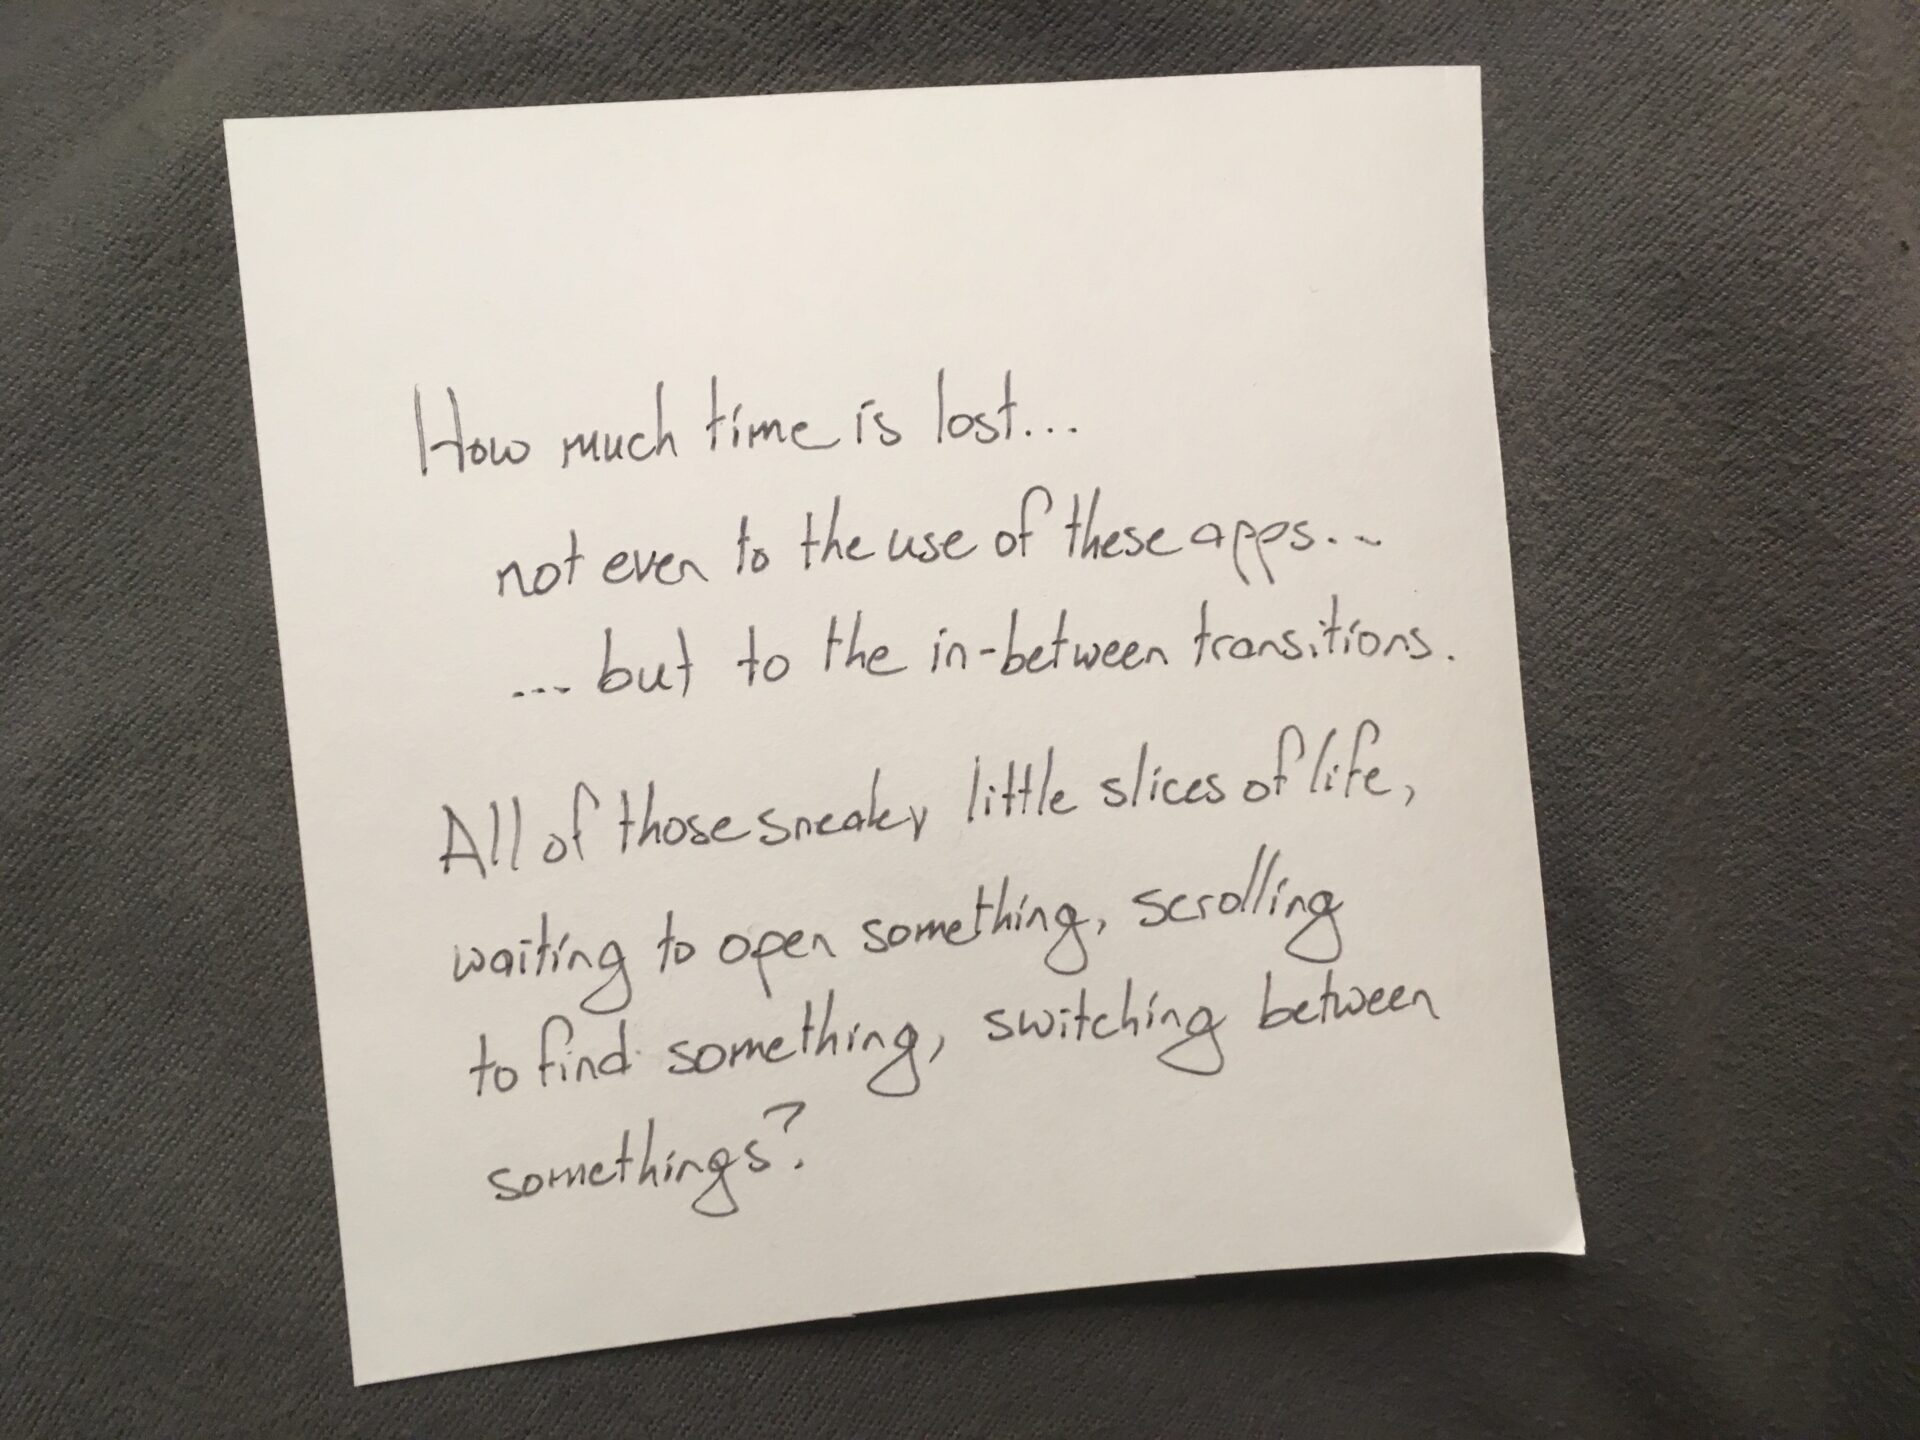 How much time is lost...
not even to the use of these apps...
... but to the in-between transitions.
All of those sneaky little slices of life,
waiting to open something, scrolling
to find something, switching between
somethings?